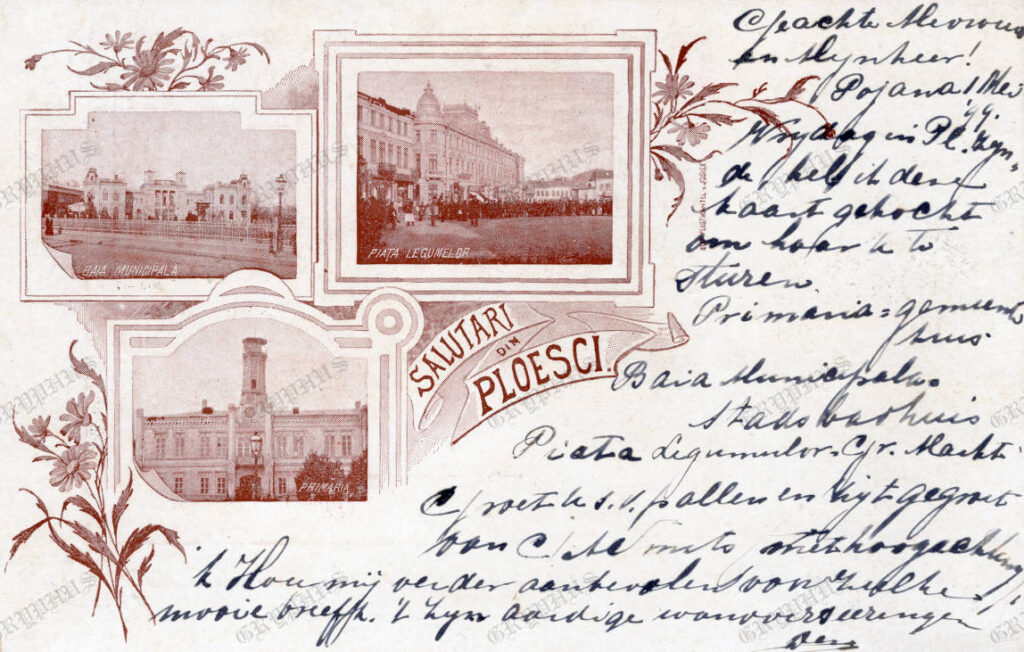 Geachte Mevrouw
en Mynheer!
Pojana 1 Mei
'99.
Vrydag in Pl. zyn-
de heb ik deze
kaart gekocht
om haar u te
sturen.
Primaria = gemeente
huis.
Baia Municipala =
Stads badhuis
Piata Legumulor = Gr. Markt.
Groet u s.v.p. allen en zyt gegroet
van
'k Hou mij verder aanbevolen voor zulke
mooie 't zyn aardige
BAIA MUNICIPALA
PIAȚA LEGUMELOR
PRIMARIA
SALUTARI
DIN
PLOESCI.
GRYPHUS